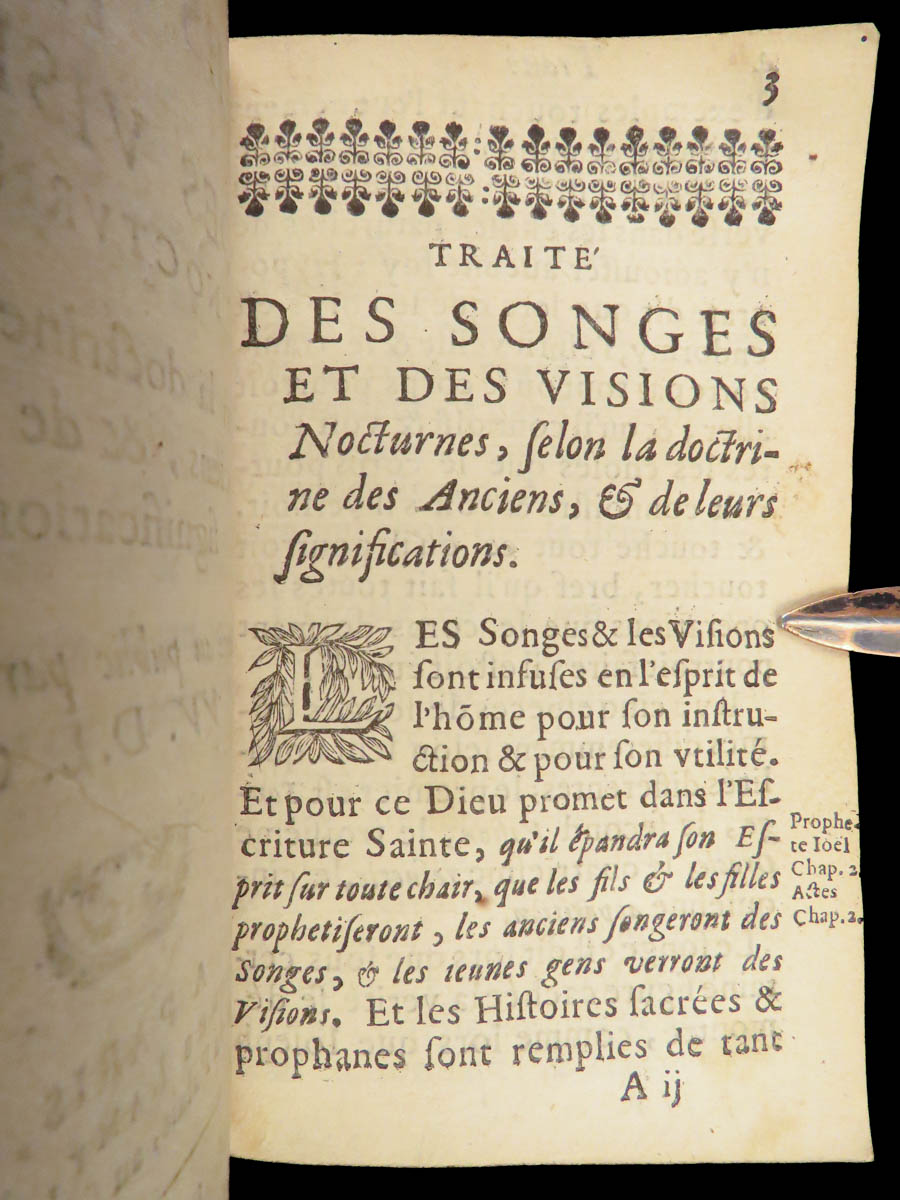 3
TRAITE'
DES SONGES
ET DES VISIONS
Nocturnes, ſelon la doctri-
ne des Anciens, & de leurs
ſignifications.
LES Songes & les Viſions
ſont infuſes en l'eſprit de
l'hõme pour ſon inſtru-
ction & pour ſon vtilité.
Et pour ce Dieu promet dans l'Eſ-
criture Sainte, qu'il épandra ſon Eſ-
prit ſur toute chair, que les fils & les filles
prophetiſeront, les anciens ſongeront des
Songes, & les ieunes gens verront des
Viſions. Et les Hiſtoires ſacrées &
prophanes ſont remplies de tant
A ij
Prophe-
te Ioël
Chap. 2.
Actes
Chap. 2.